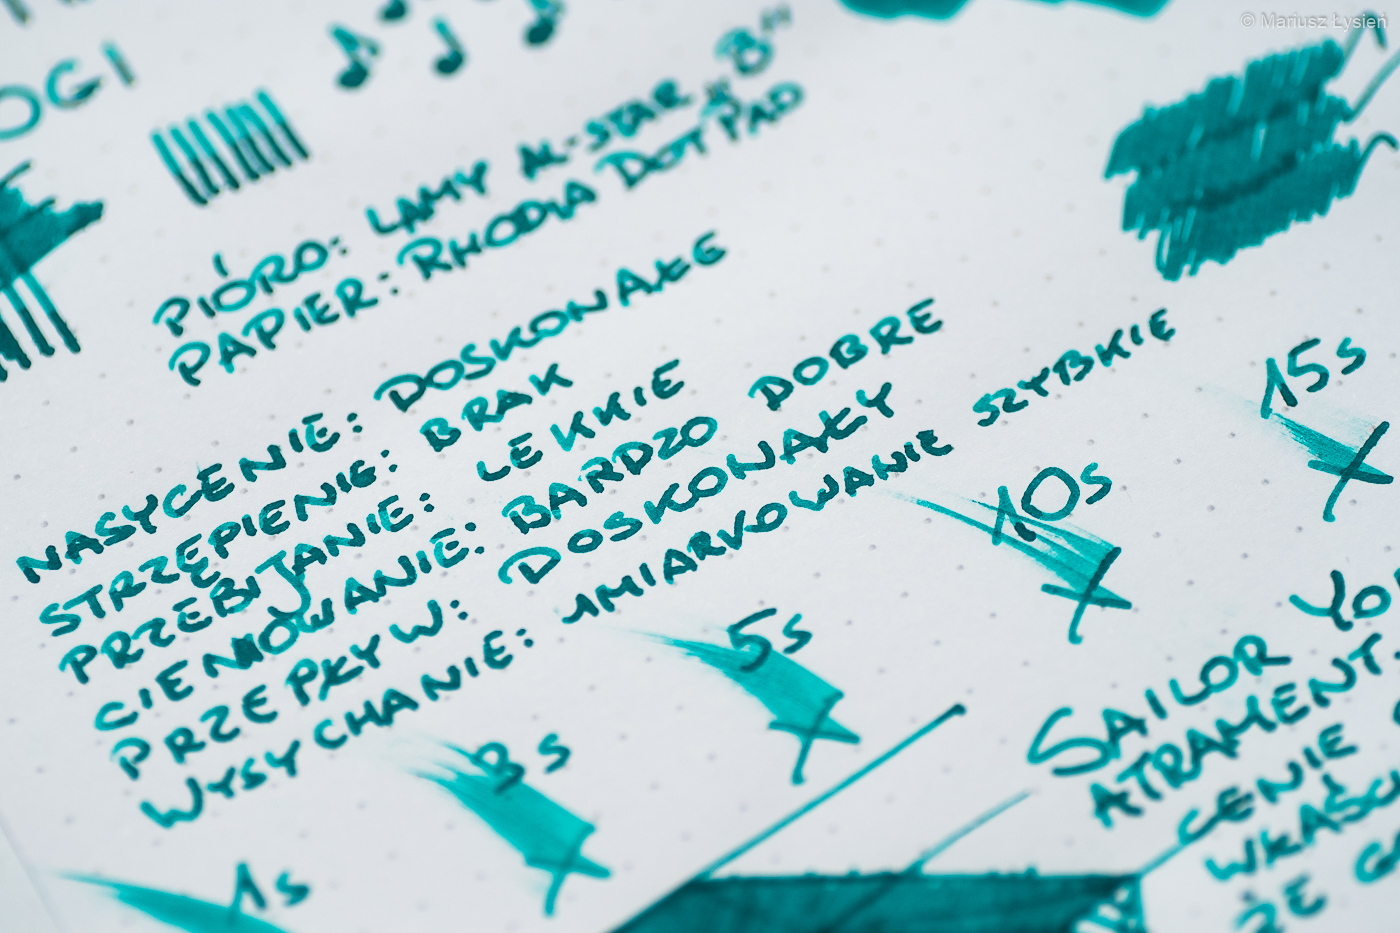 © Mariusz Łysień
OGI
PIÓRO: LAMY AL-STAR „B”
PAPIER: RHODIA DOT PAD
NASYCENIE: DOSKONAŁE
STRZĘPIENIE: BRAK
PRZEBIJANIE: LEKKIE
CIENIOWANIE: BARDZO DOBRE
PRZEPŁYW: DOSKONAŁY
WYSYCHANIE: UMIARKOWANIE SZYBKIE
1s
3s
5s
10s
15s
SAILOR YO
ATRAMENT.
CENIE
WŁAŚC
ŻE G